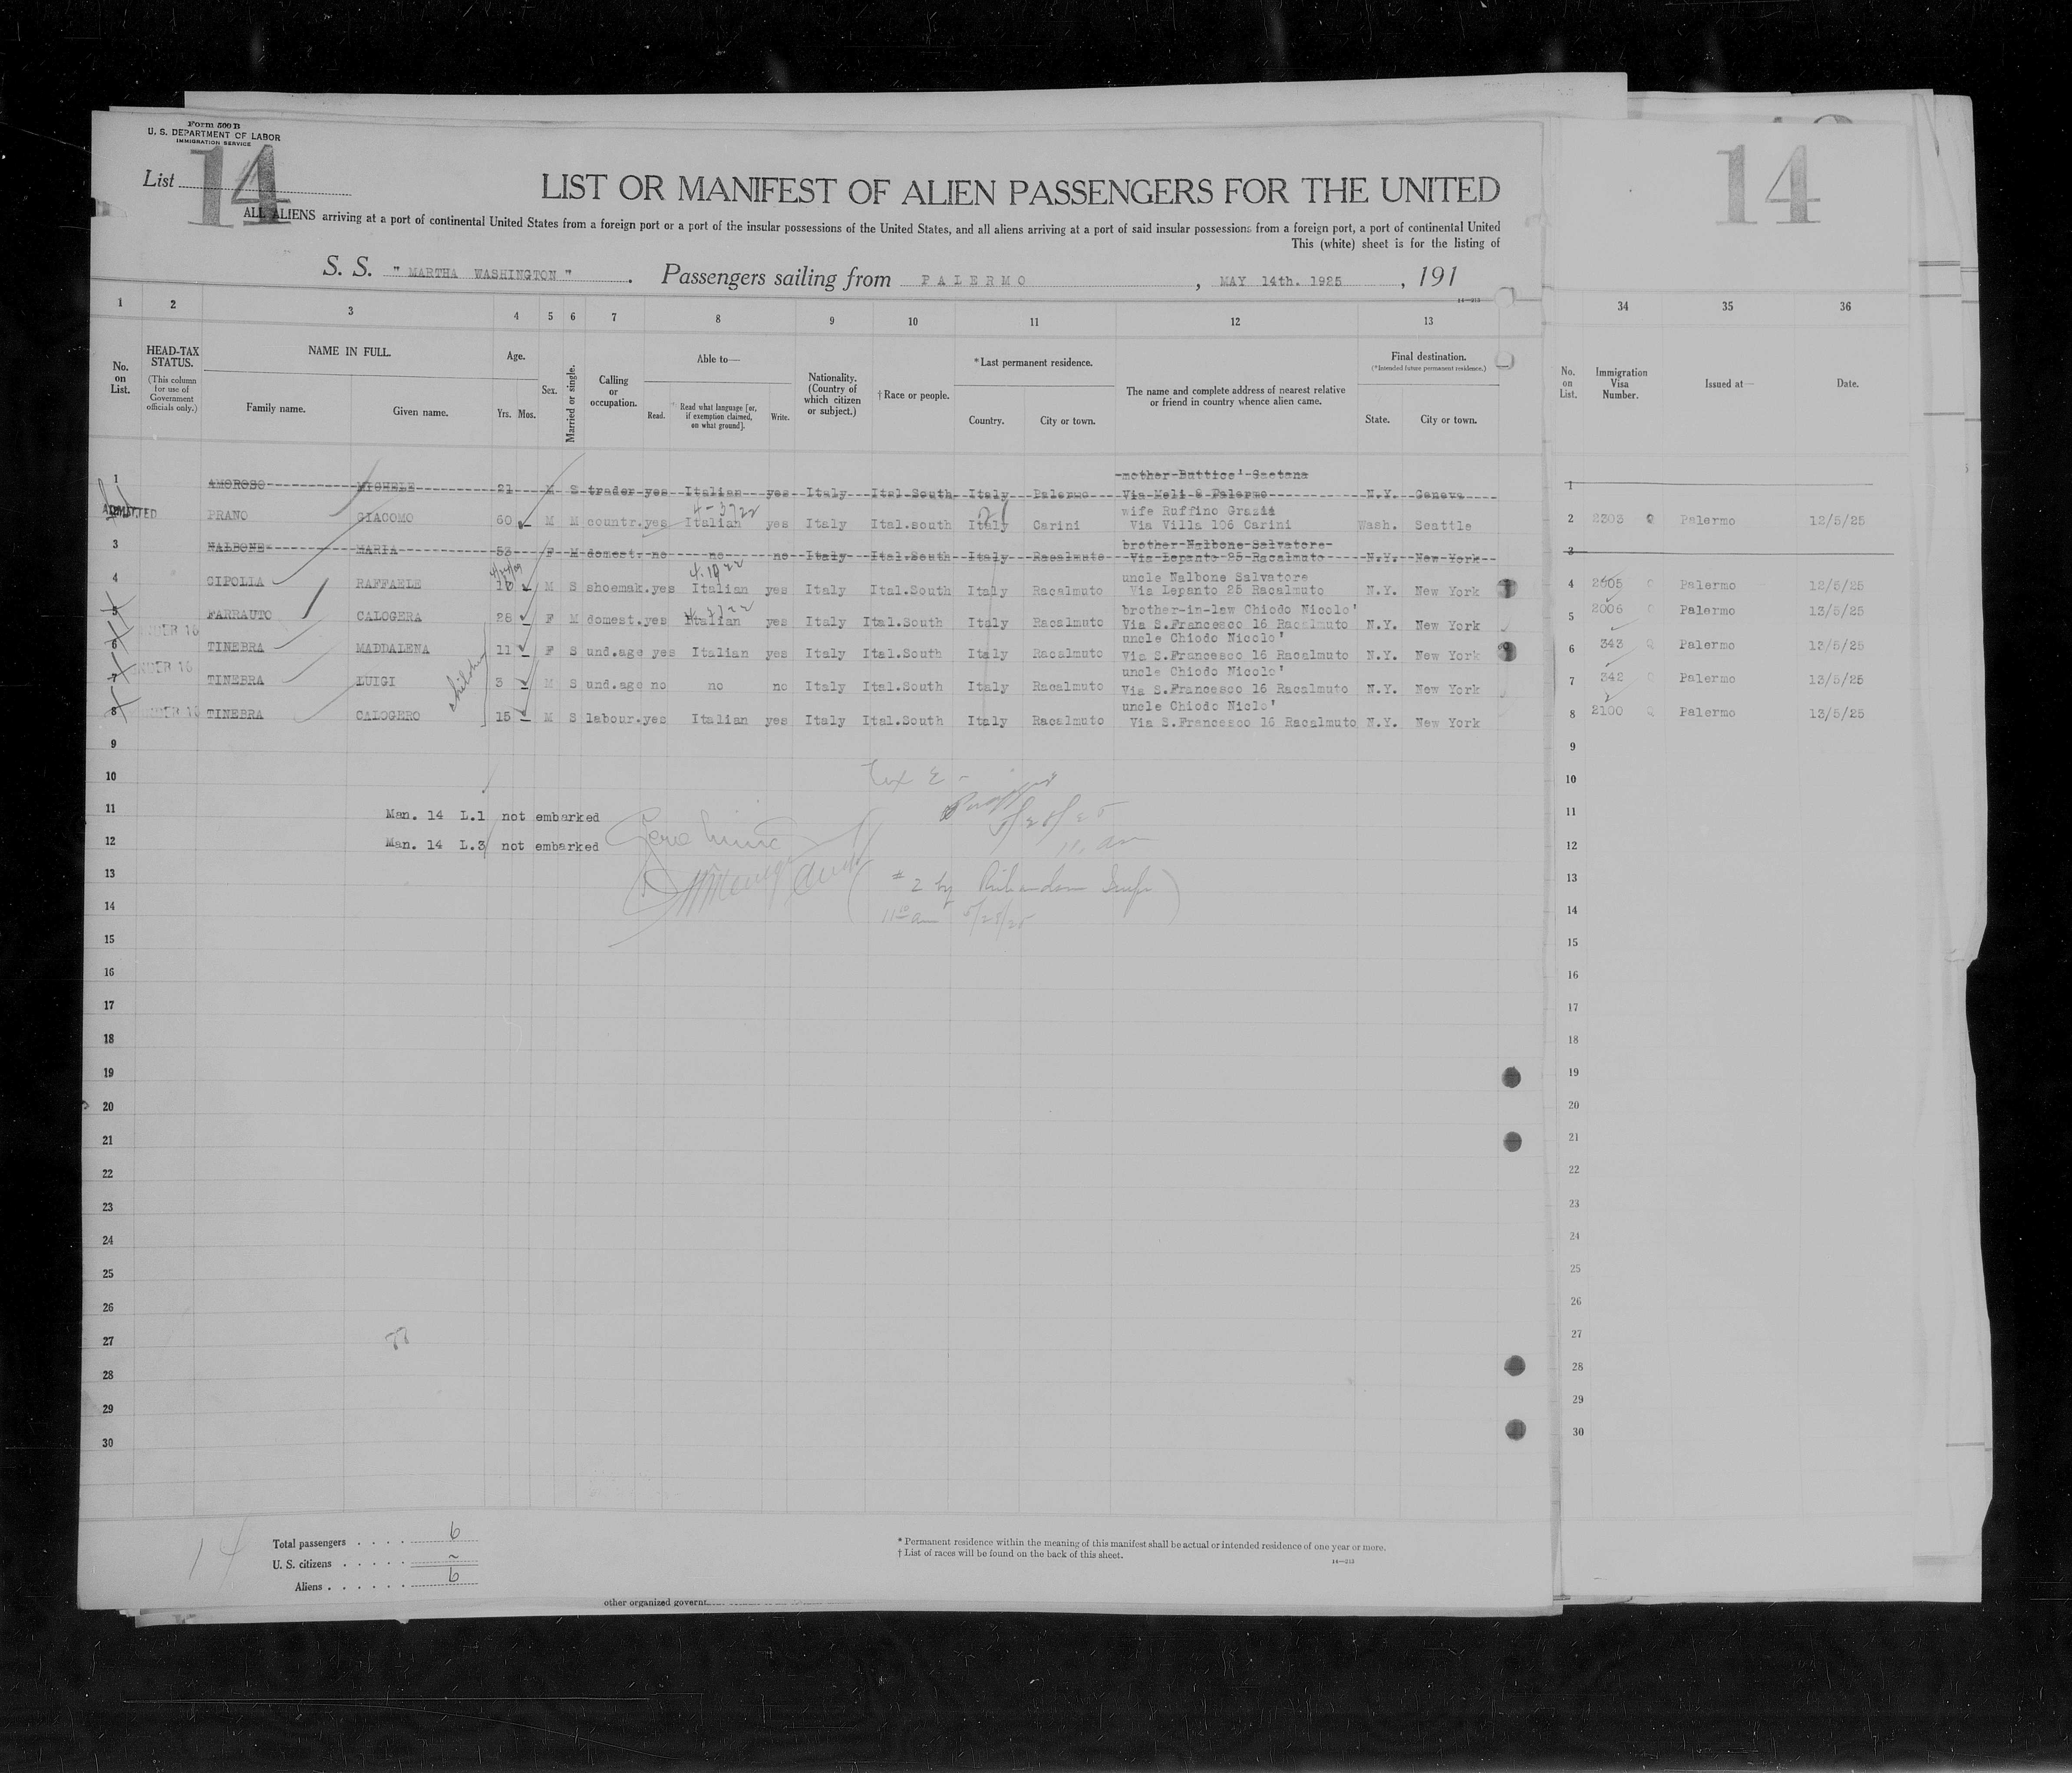 Form 500 B
U. S. DEPARTMENT OF LABOR
IMMIGRATION SERVICE
List 14
14
LIST OR MANIFEST OF ALIEN PASSENGERS FOR THE UNITED
ALL ALIENS arriving at a port of continental United States from a foreign port or a port of the insular possessions of the United States, and all aliens arriving at a port of said insular possessions from a foreign port, a port of continental United
This (white) sheet is for the listing of
S. S. " MARTHA WASHINGTON " . Passengers sailing from PALERMO , MAY 14th. 1925 , 191
14—213
1 2 3 4 5 6 7 8 9 10 11 12 13 34 35 36
No. on List.
HEAD-TAX STATUS.
(This column for use of Government officials only.)
NAME IN FULL.
Family name. Given name.
Age.
Yrs. Mos.
Sex.
Married or single.
Calling or occupation.
Able to—
Read. Read what language [or, if exemption claimed, on what ground]. Write.
Nationality. (Country of which citizen or subject.)
† Race or people.
* Last permanent residence.
Country. City or town.
The name and complete address of nearest relative or friend in country whence alien came.
Final destination.
(*Intended future permanent residence.)
State. City or town.
No. on List.
Immigration Visa Number.
Issued at—
Date.
mother Buttice' Gaetana
1 AMOROSO MICHELE 21 M S trader yes Italian yes Italy Ital.South Italy Palermo Via Meli 8 Palermo N.Y. Geneva 1
ADMITTED
4-3722
wife Ruffino Grazia
2 PRANO GIACOMO 60 M M countr. yes Italian yes Italy Ital.south Italy Carini Via Villa 106 Carini Wash. Seattle 2 2303 Q Palermo 12/5/25
brother Nalbone Salvatore
3 NALBONE MARIA 53 F M domest. no no no Italy Ital.South Italy Racalmuto Via Lepanto 25 Racalmuto N.Y. New York 3
uncle Nalbone Salvatore
4 CIPOLLA RAFFAELE 16 M S shoemak. yes Italian yes Italy Ital.South Italy Racalmuto Via Lepanto 25 Racalmuto N.Y. New York 4 2005 Q Palermo 12/5/25
brother-in-law Chiodo Nicolo'
5 FARRAUTO CALOGERA 28 F M domest. yes Italian yes Italy Ital.South Italy Racalmuto Via S.Francesco 16 Racalmuto N.Y. New York 5 2006 Q Palermo 13/5/25
UNDER 16
uncle Chiodo Nicolo'
6 TINEBRA MADDALENA 11 F S und.age yes Italian yes Italy Ital.South Italy Racalmuto Via S.Francesco 16 Racalmuto N.Y. New York 6 343 Q Palermo 13/5/25
UNDER 16
children
uncle Chiodo Nicolo'
7 TINEBRA LUIGI 3 M S und.age no no no Italy Ital.South Italy Racalmuto Via S.Francesco 16 Racalmuto N.Y. New York 7 342 Q Palermo 13/5/25
UNDER 16
uncle Chiodo Niclo'
8 TINEBRA CALOGERO 15 M S labour. yes Italian yes Italy Ital.South Italy Racalmuto Via S.Francesco 16 Racalmuto N.Y. New York 8 2100 Q Palermo 13/5/25
9 9
10 10
11 Man. 14 L.1 not embarked 11
12 Man. 14 L.3 not embarked 12
11 am
13 13
# 2 by
14 5/28/25 14
15 15
16 16
17 17
18 18
19 19
20 20
21 21
22 22
23 23
24 24
25 25
26 26
27 27
28 28
29 29
30 30
14
Total passengers . . . . 6
U. S. citizens . . . . . ~
Aliens . . . . . . 6
* Permanent residence within the meaning of this manifest shall be actual or intended residence of one year or more.
† List of races will be found on the back of this sheet.
14—213
other organized governt